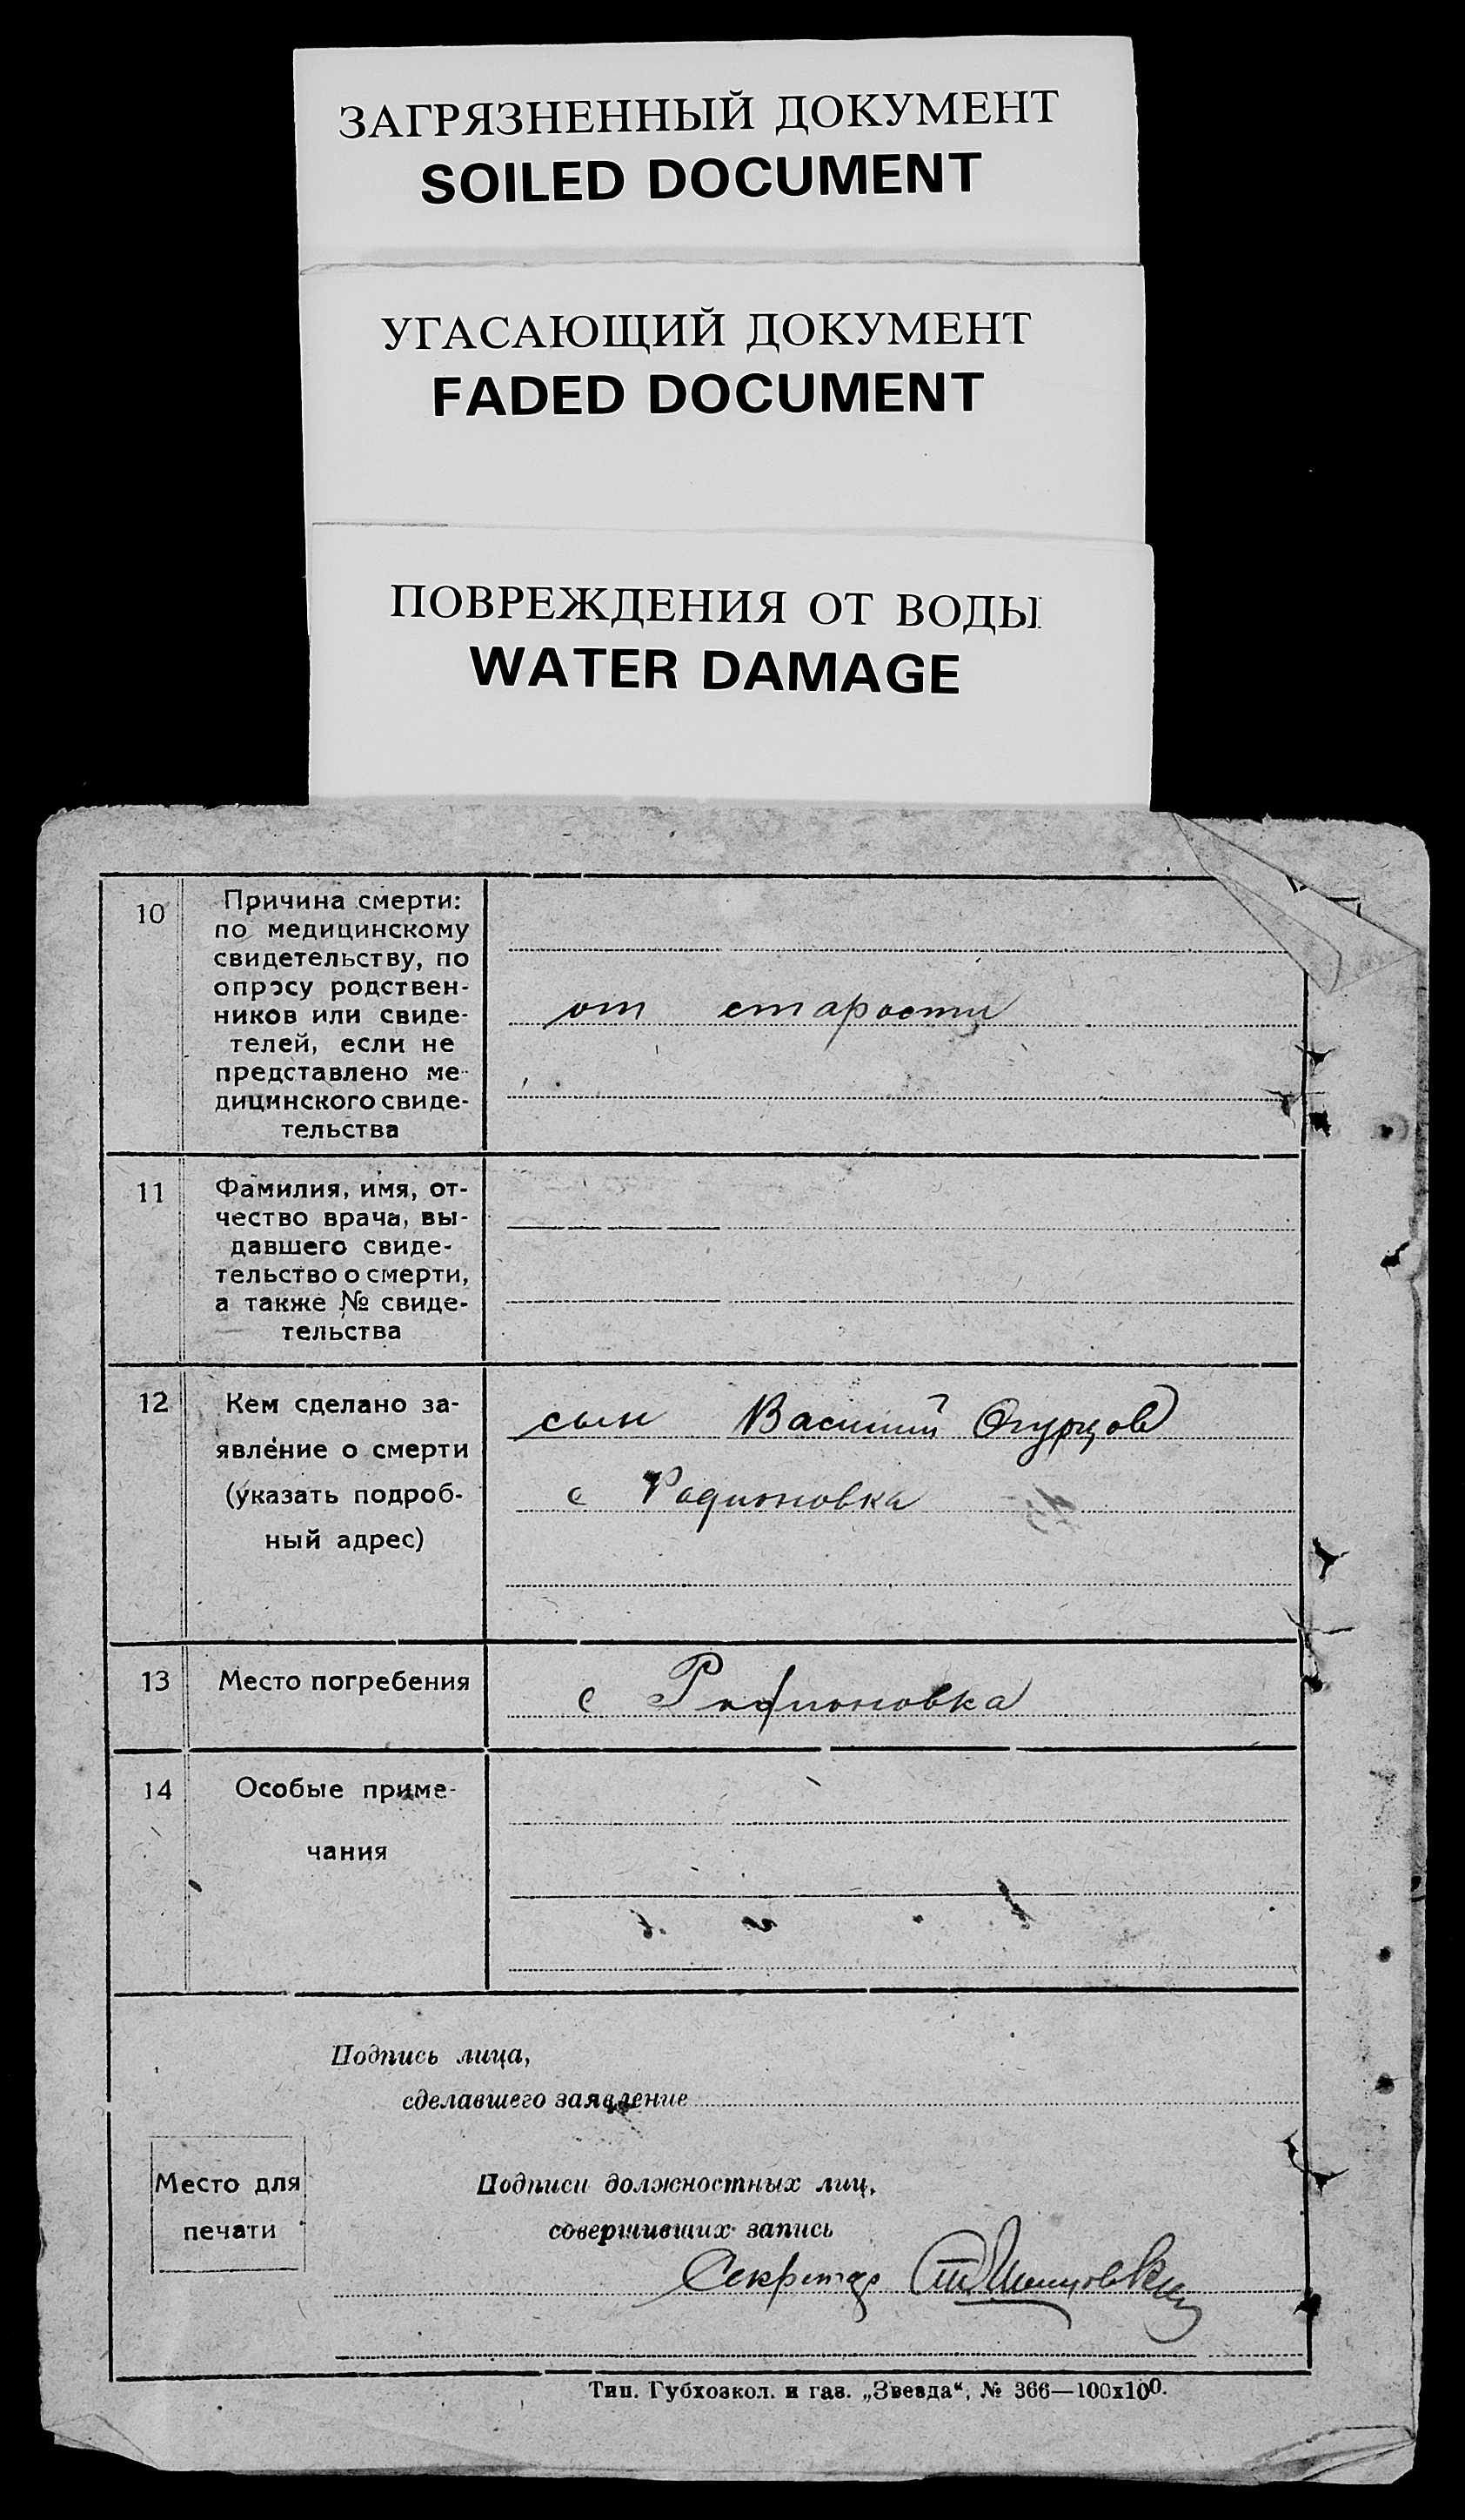 ЗАГРЯЗНЕННЫЙ ДОКУМЕНТ
SOILED DOCUMENT
УГАСАЮЩИЙ ДОКУМЕНТ
FADED DOCUMENT
ПОВРЕЖДЕНИЯ ОТ ВОДЫ
WATER DAMAGE
10
Причина смерти:
по медицинскому
свидетельству, по
опросу родствен-
ников или свиде-
телей, если не
представлено ме-
дицинского свиде-
тельства
от старости
11
Фамилия, имя, от-
чество врача, вы-
давшего свиде-
тельство о смерти,
а также № свиде-
тельства
12
Кем сделано за-
явление о смерти
(указать подроб-
ный адрес)
сын Василий Огурцов
с Родионовка
13
Место погребения
с Родионовка
14
Особые приме-
чания
Подпись лица,
сделавшего заявление
Место для
печати
Подписи должностных лиц,
совершивших запись
Секретарь
Тип. Губхозкол. и газ. „Звезда“, № 366—100х100.